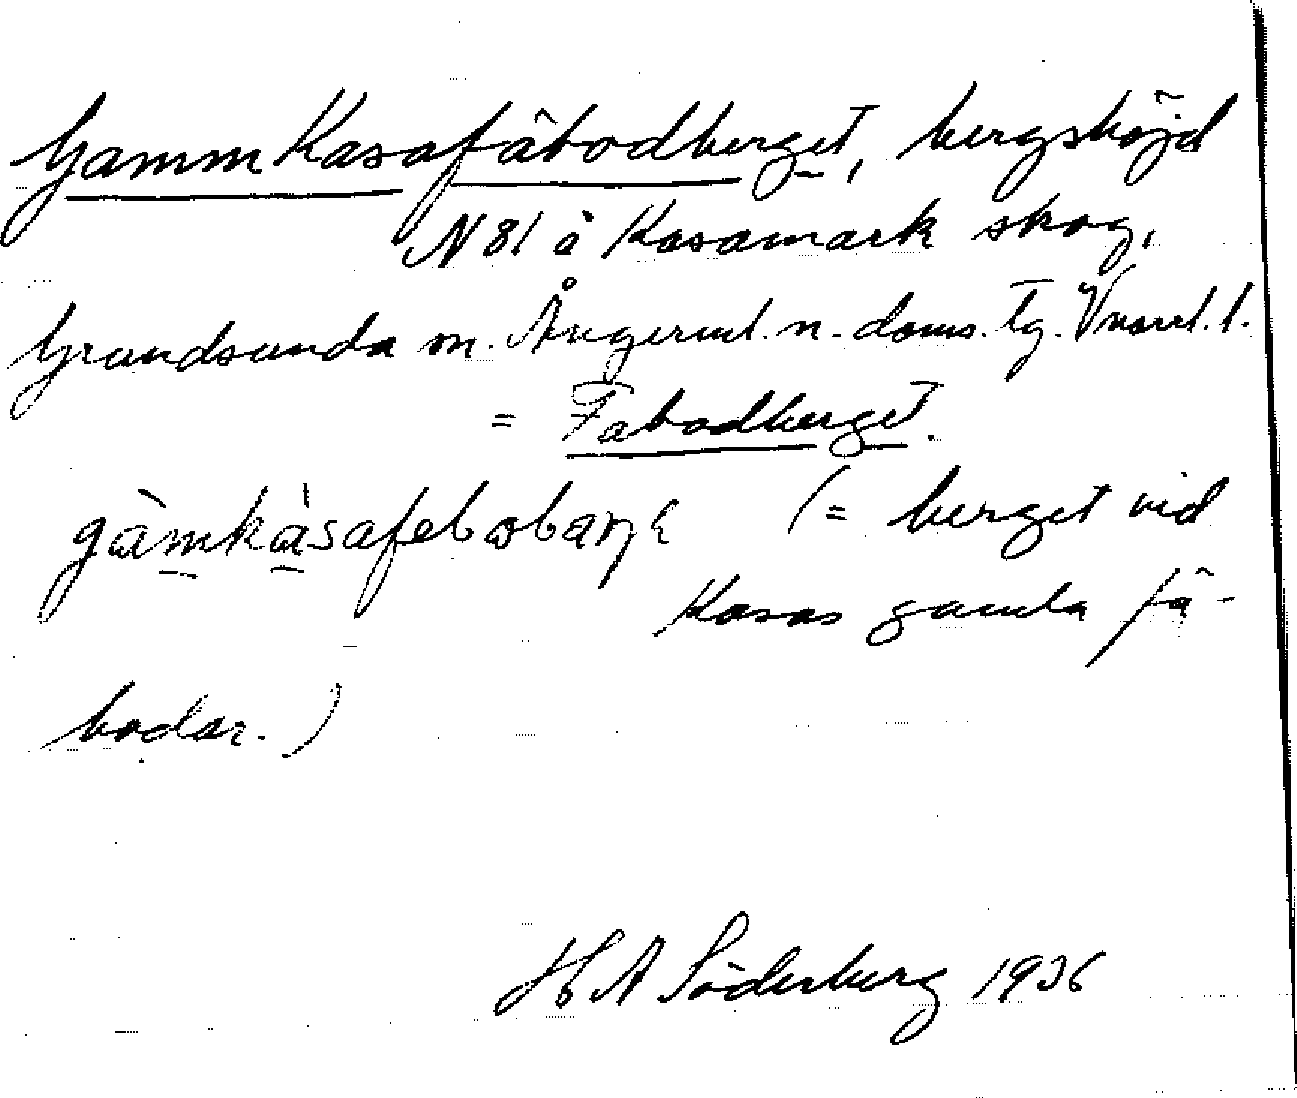 GammKasafäbodberget, bergshöjd
N 81 å Kasamark skog,
Grundsunda sn. Ångerml. n. doms. Tg. Vnorrl. l.
= Fäbodberget.
gàmkàsafebobaŋɛ (= berget vid
Kasas gamla fä-
bodar.)
H A Söderberg 1936